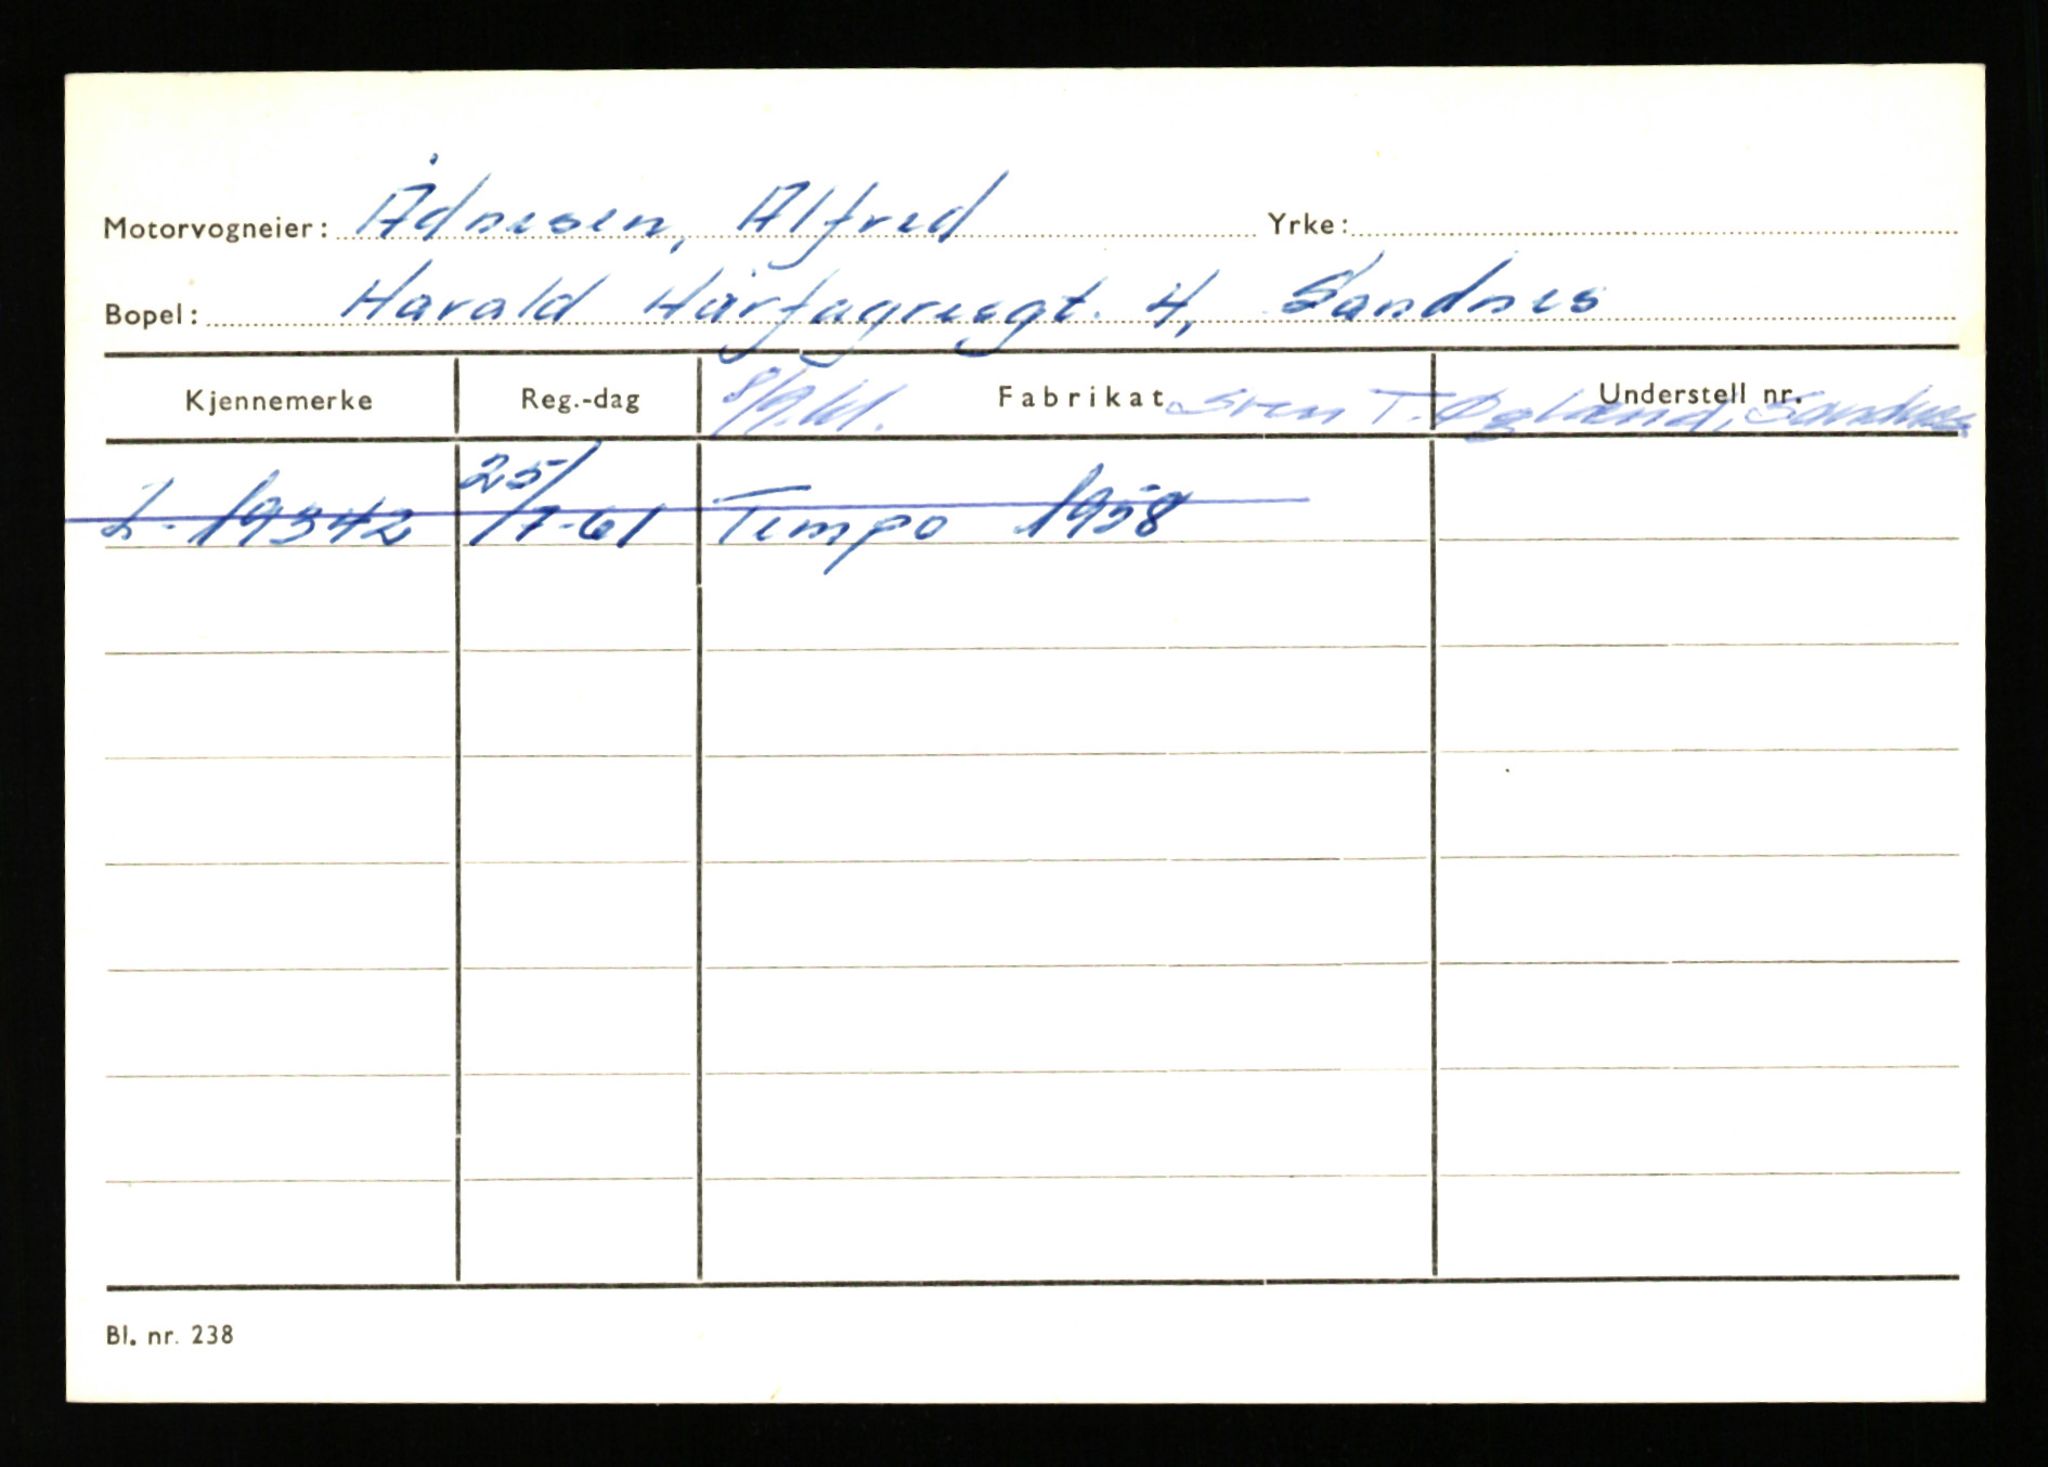 Motorvogneier: Ådnesen, Alfred Yrke:
Bopel: Harald Hårfagresgt. 4, Sandnes
Kjennemerke Reg.-dag Fabrikat Understell nr.
8/9.61. Sven T. Øgland, Sandnes
L-19342 25/7-61 Tempo 1958
Bl. nr. 238